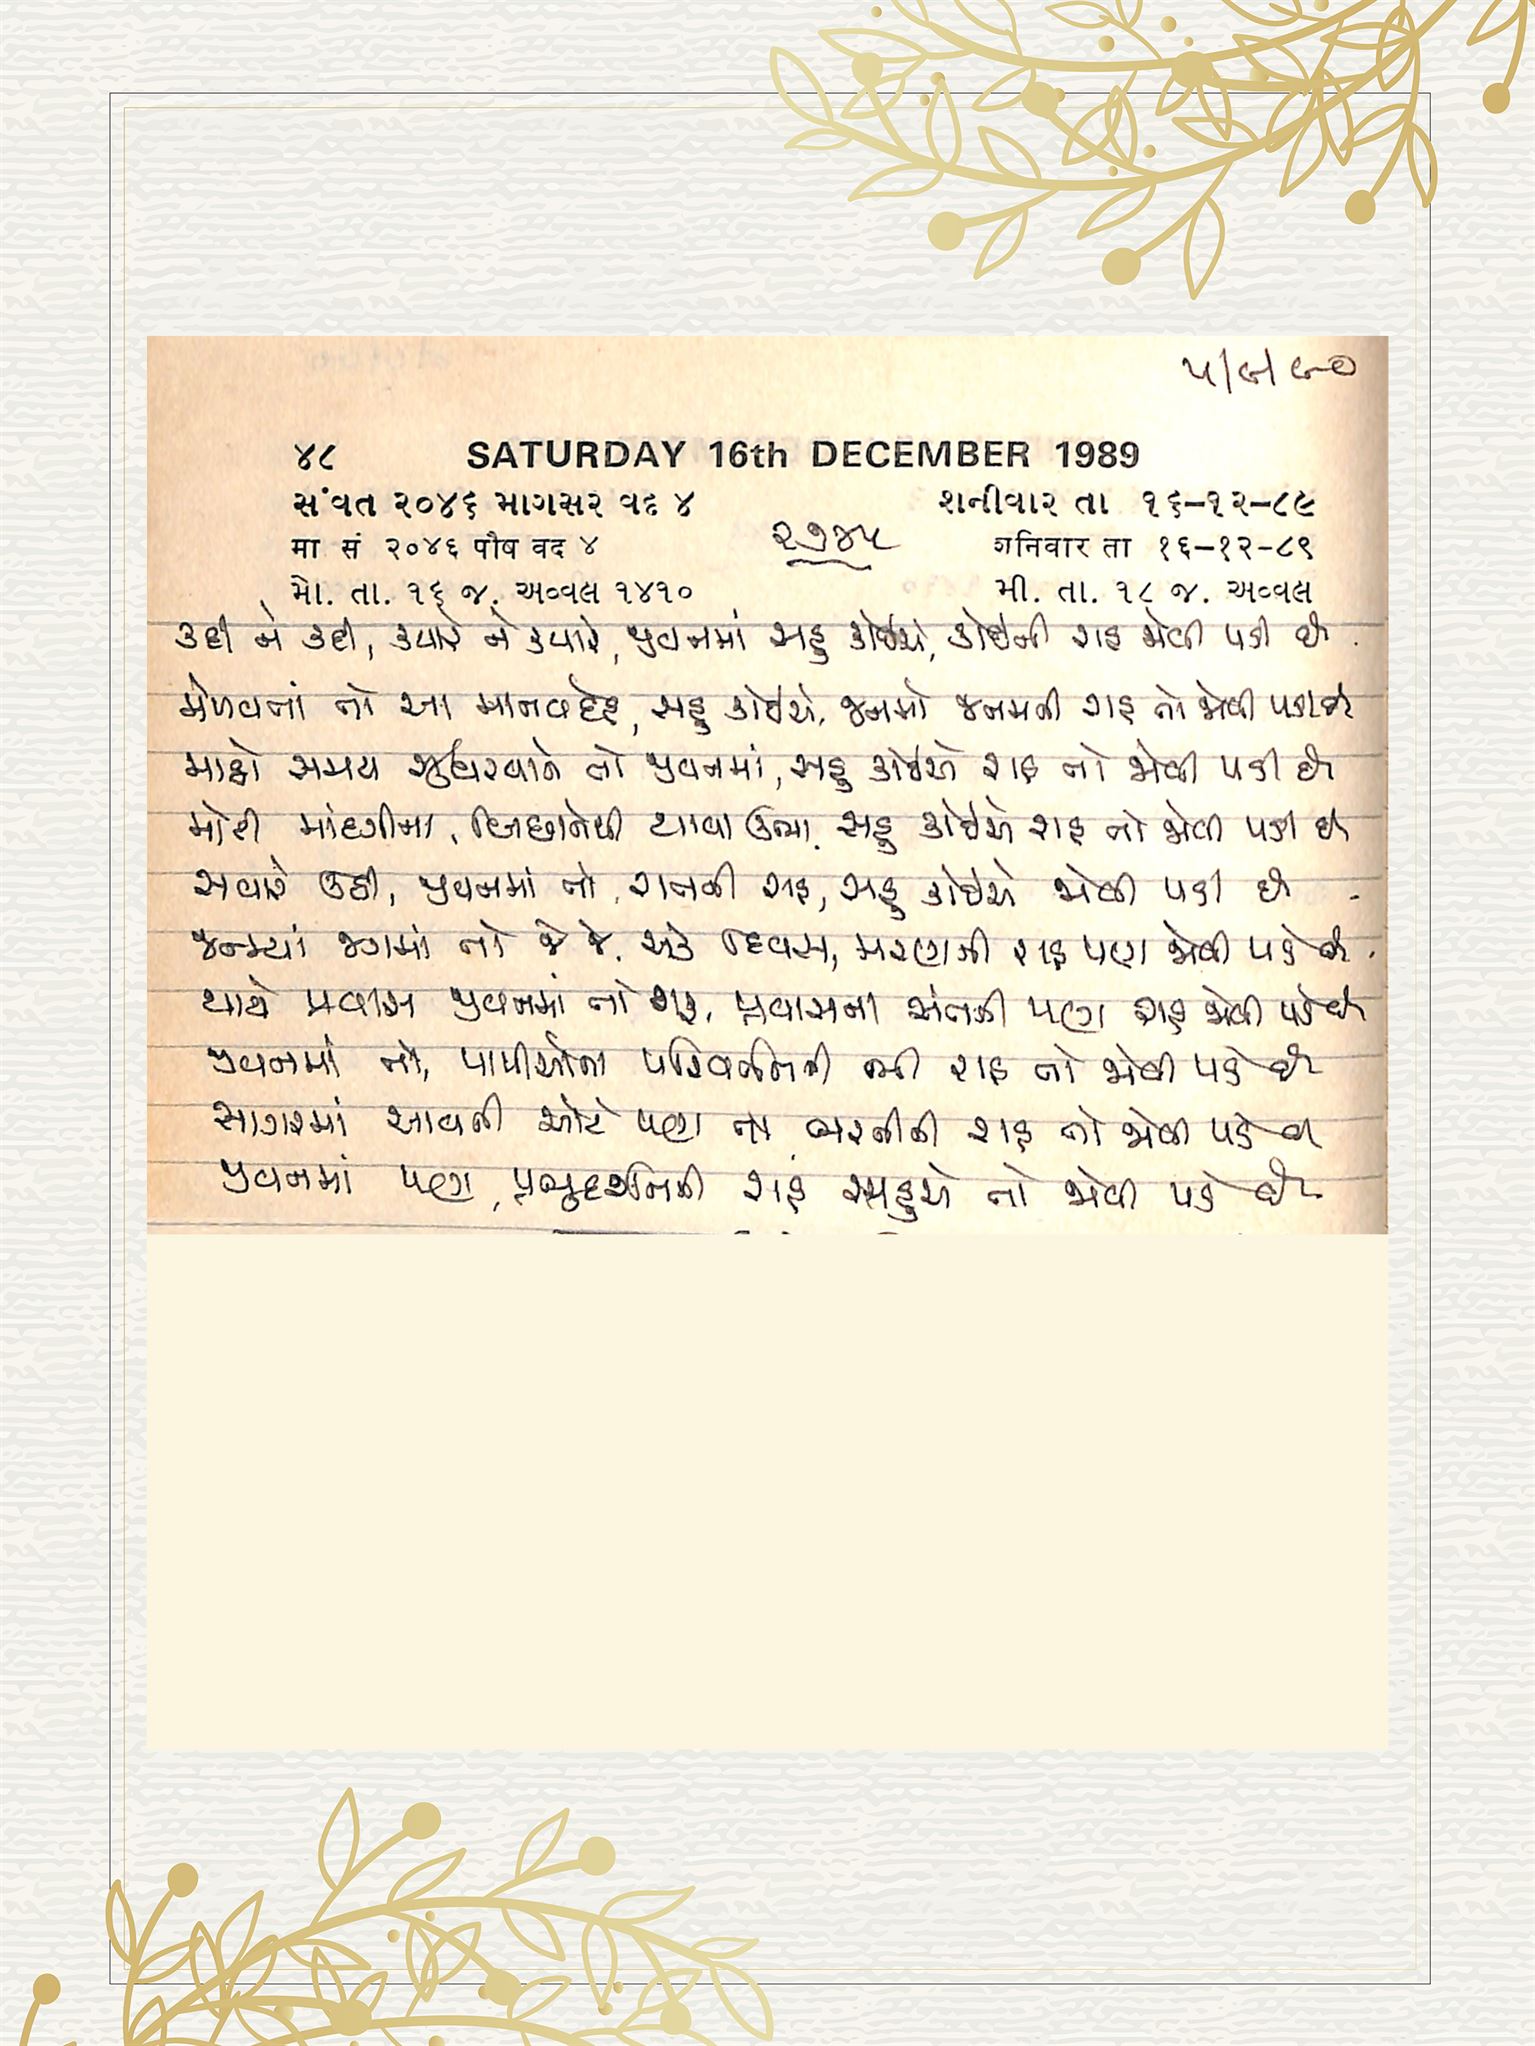 ૫/૯/૯૦
૪૮ SATURDAY 16th DECEMBER 1989
સંવત ૨૦૪૬ માગસર વદ ૪ શનીવાર તા ૧૬–૧૨–૮૯
मा सं २०४६ पौष वद ४ शनिवार ता १६–१२–८९
મો. તા. ૧૬ જ. અવ્વલ ૧૪૧૦ મી. તા. ૧૮ જ. અવ્વલ
૨૭૪૫
કદી ને કદી, ક્યારે ને ક્યારે, જીવનમાં સહુ કોઈએ, કોઈની રાહ જોવી પડી છે.
મેળવતાં તો આ માનવદેહ, સહુ કોઈએ, જનમો જનમની રાહ તો જોવી પડી છે
માઠો સમય સુધરવાને તો જીવનમાં, સહુ કોઈએ રાહ તો જોવી પડી છે
મોટી માંદગીના, બિછાનેથી થાવા ઊભા, સહુ કોઈએ રાહ તો જોવી પડી છે
સવારે ઊઠી, જીવનમાં તો, રાતની રાહ, સહુ કોઈએ જોવી પડી છે.
જન્મ્યાં જગમાં તો જે જે, એકે દિવસ, મરણની રાહ પણ જોવી પડે છે.
થાયે પ્રવાસ જીવનમાં તો શરૂ, પ્રવાસના અંતની પણ રાહ જોવી પડે છે
જીવનમાં તો, પાપીઓના પરિવર્તનની ભી રાહ તો જોવી પડે છે
સાગરમાં આવતી ઓટે પણ તો, ભરતીની રાહ તો જોવી પડે છે
જીવનમાં પણ, પ્રભુદર્શનની રાહ સહુએ તો જોવી પડે છે